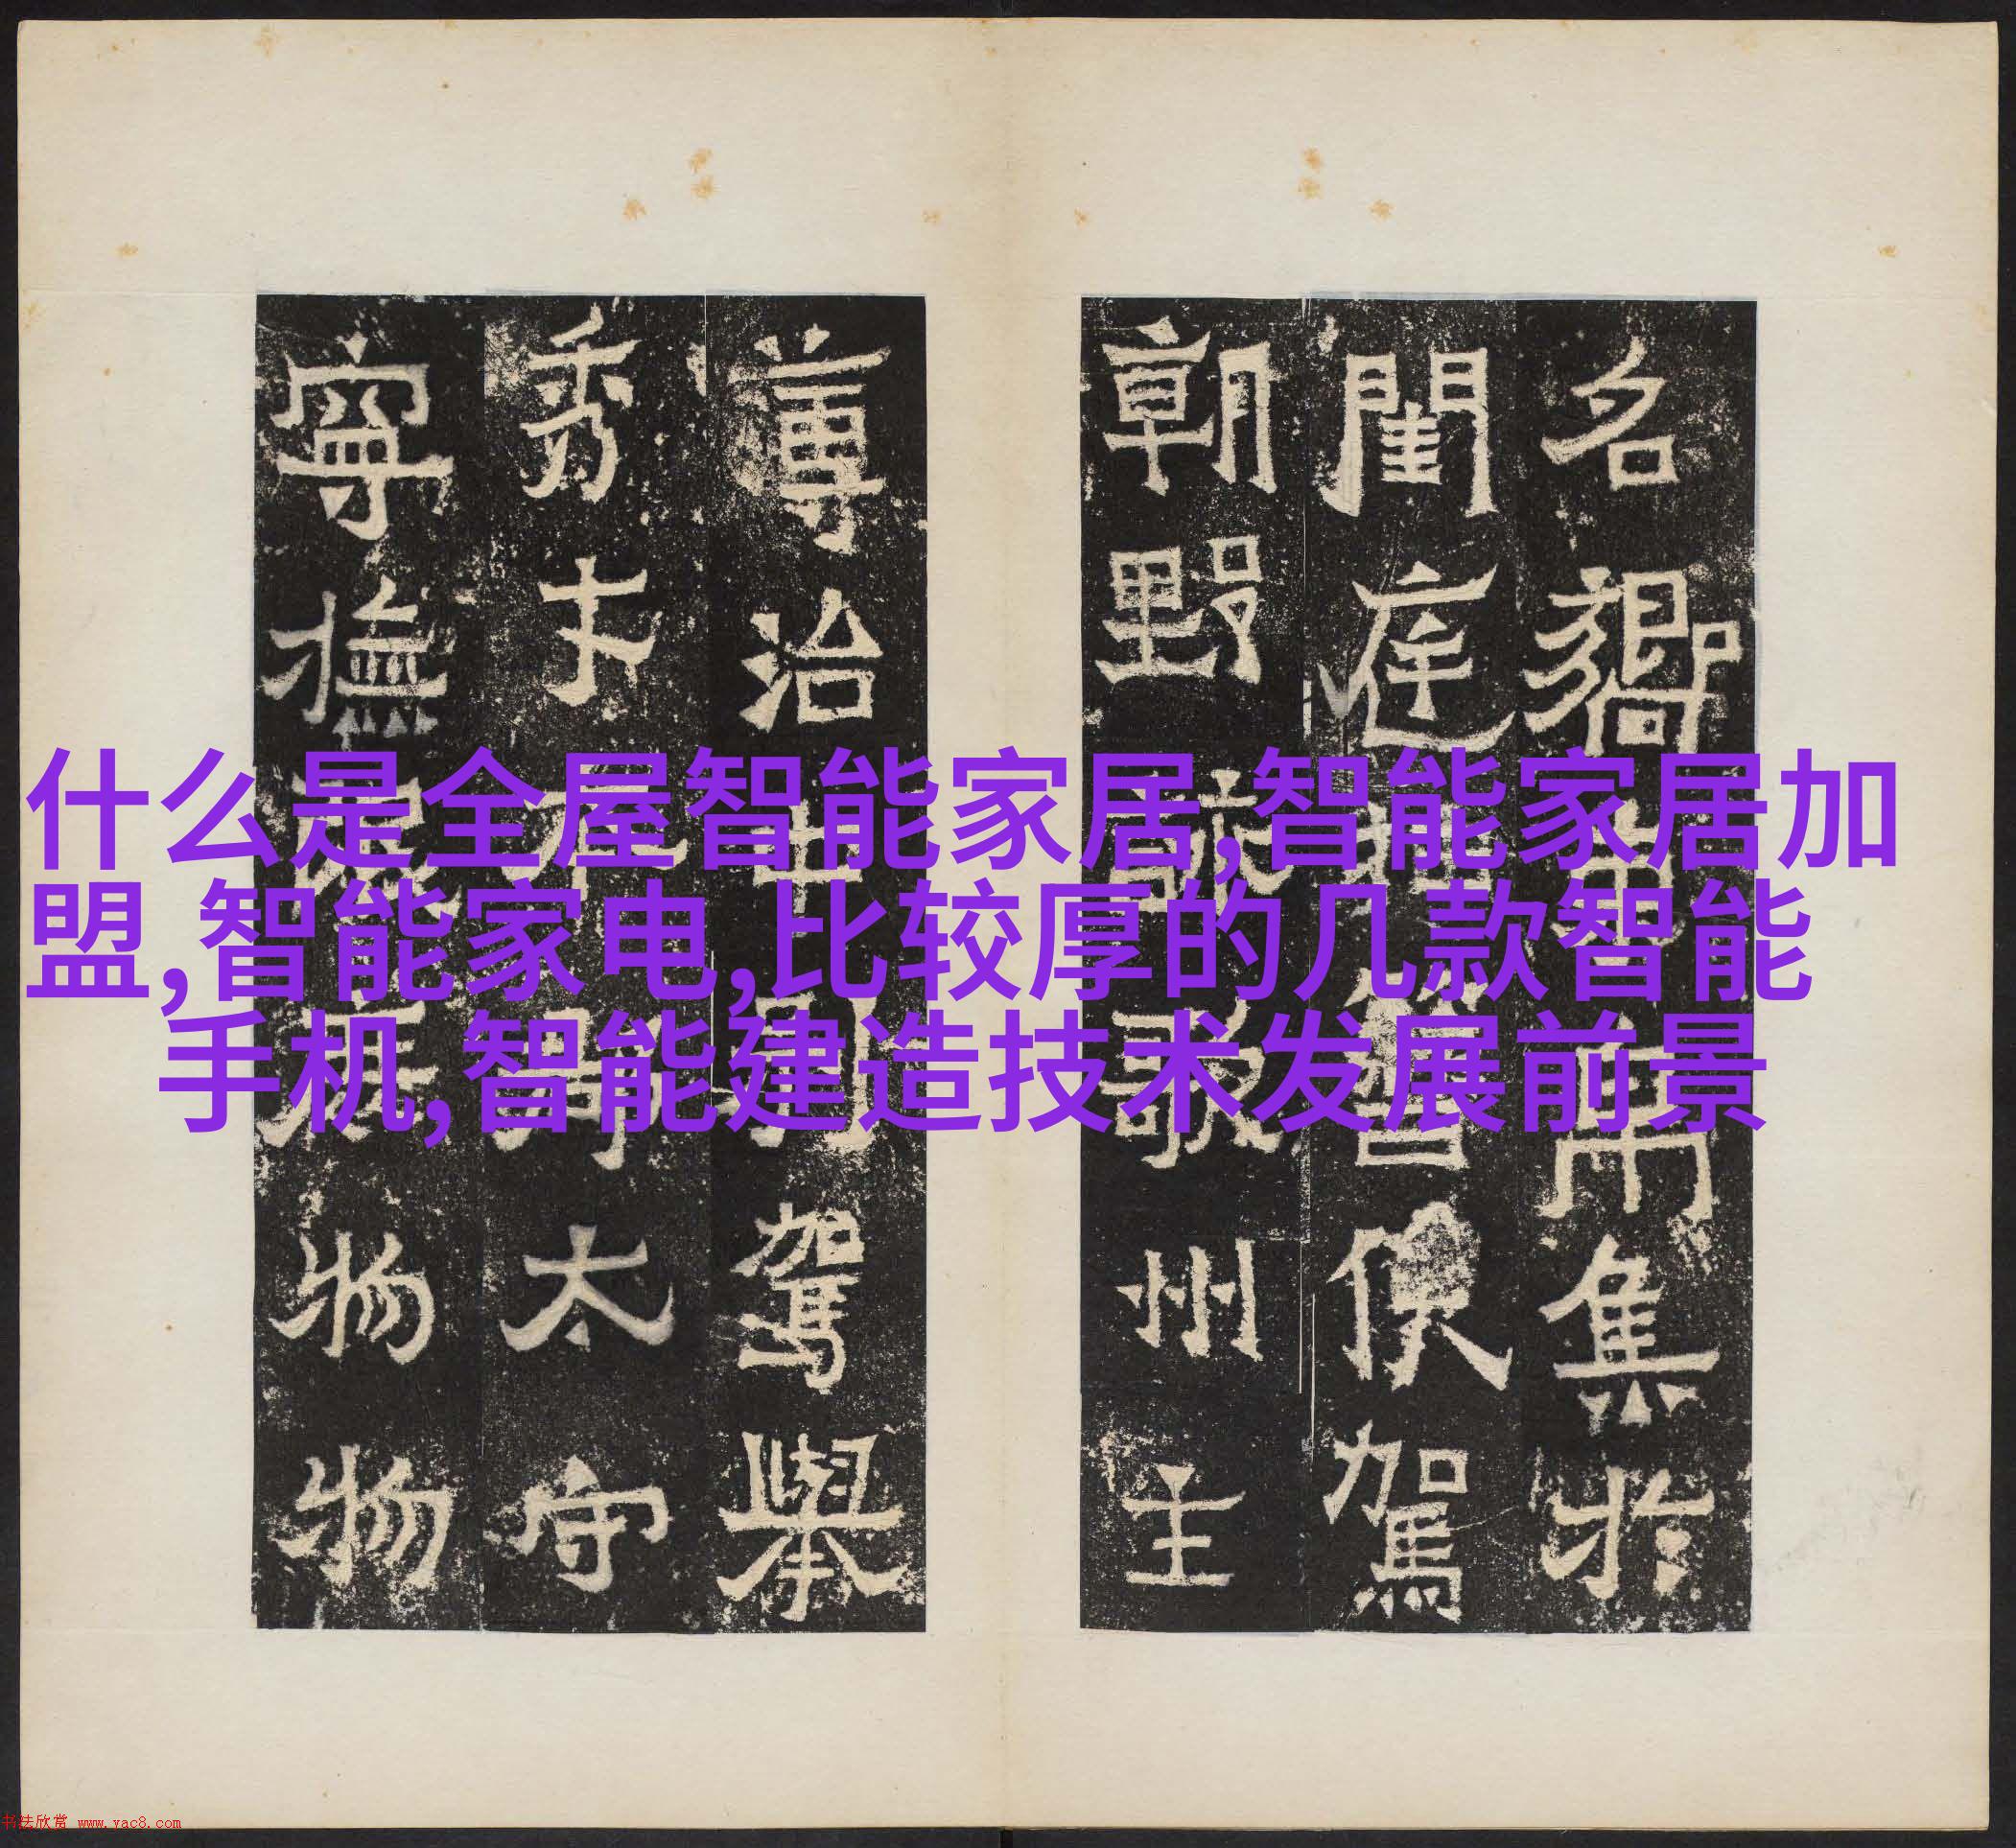 什么是全屋智能家居,智能家居加
盟,智能家电,比较厚的几款智能
手机,智能建造技术发展前景
名集於
閨庭駕
朝野歌州主
治中別駕舉
秀才太守
寧撫物物
书法欣赏 www.yac8.com